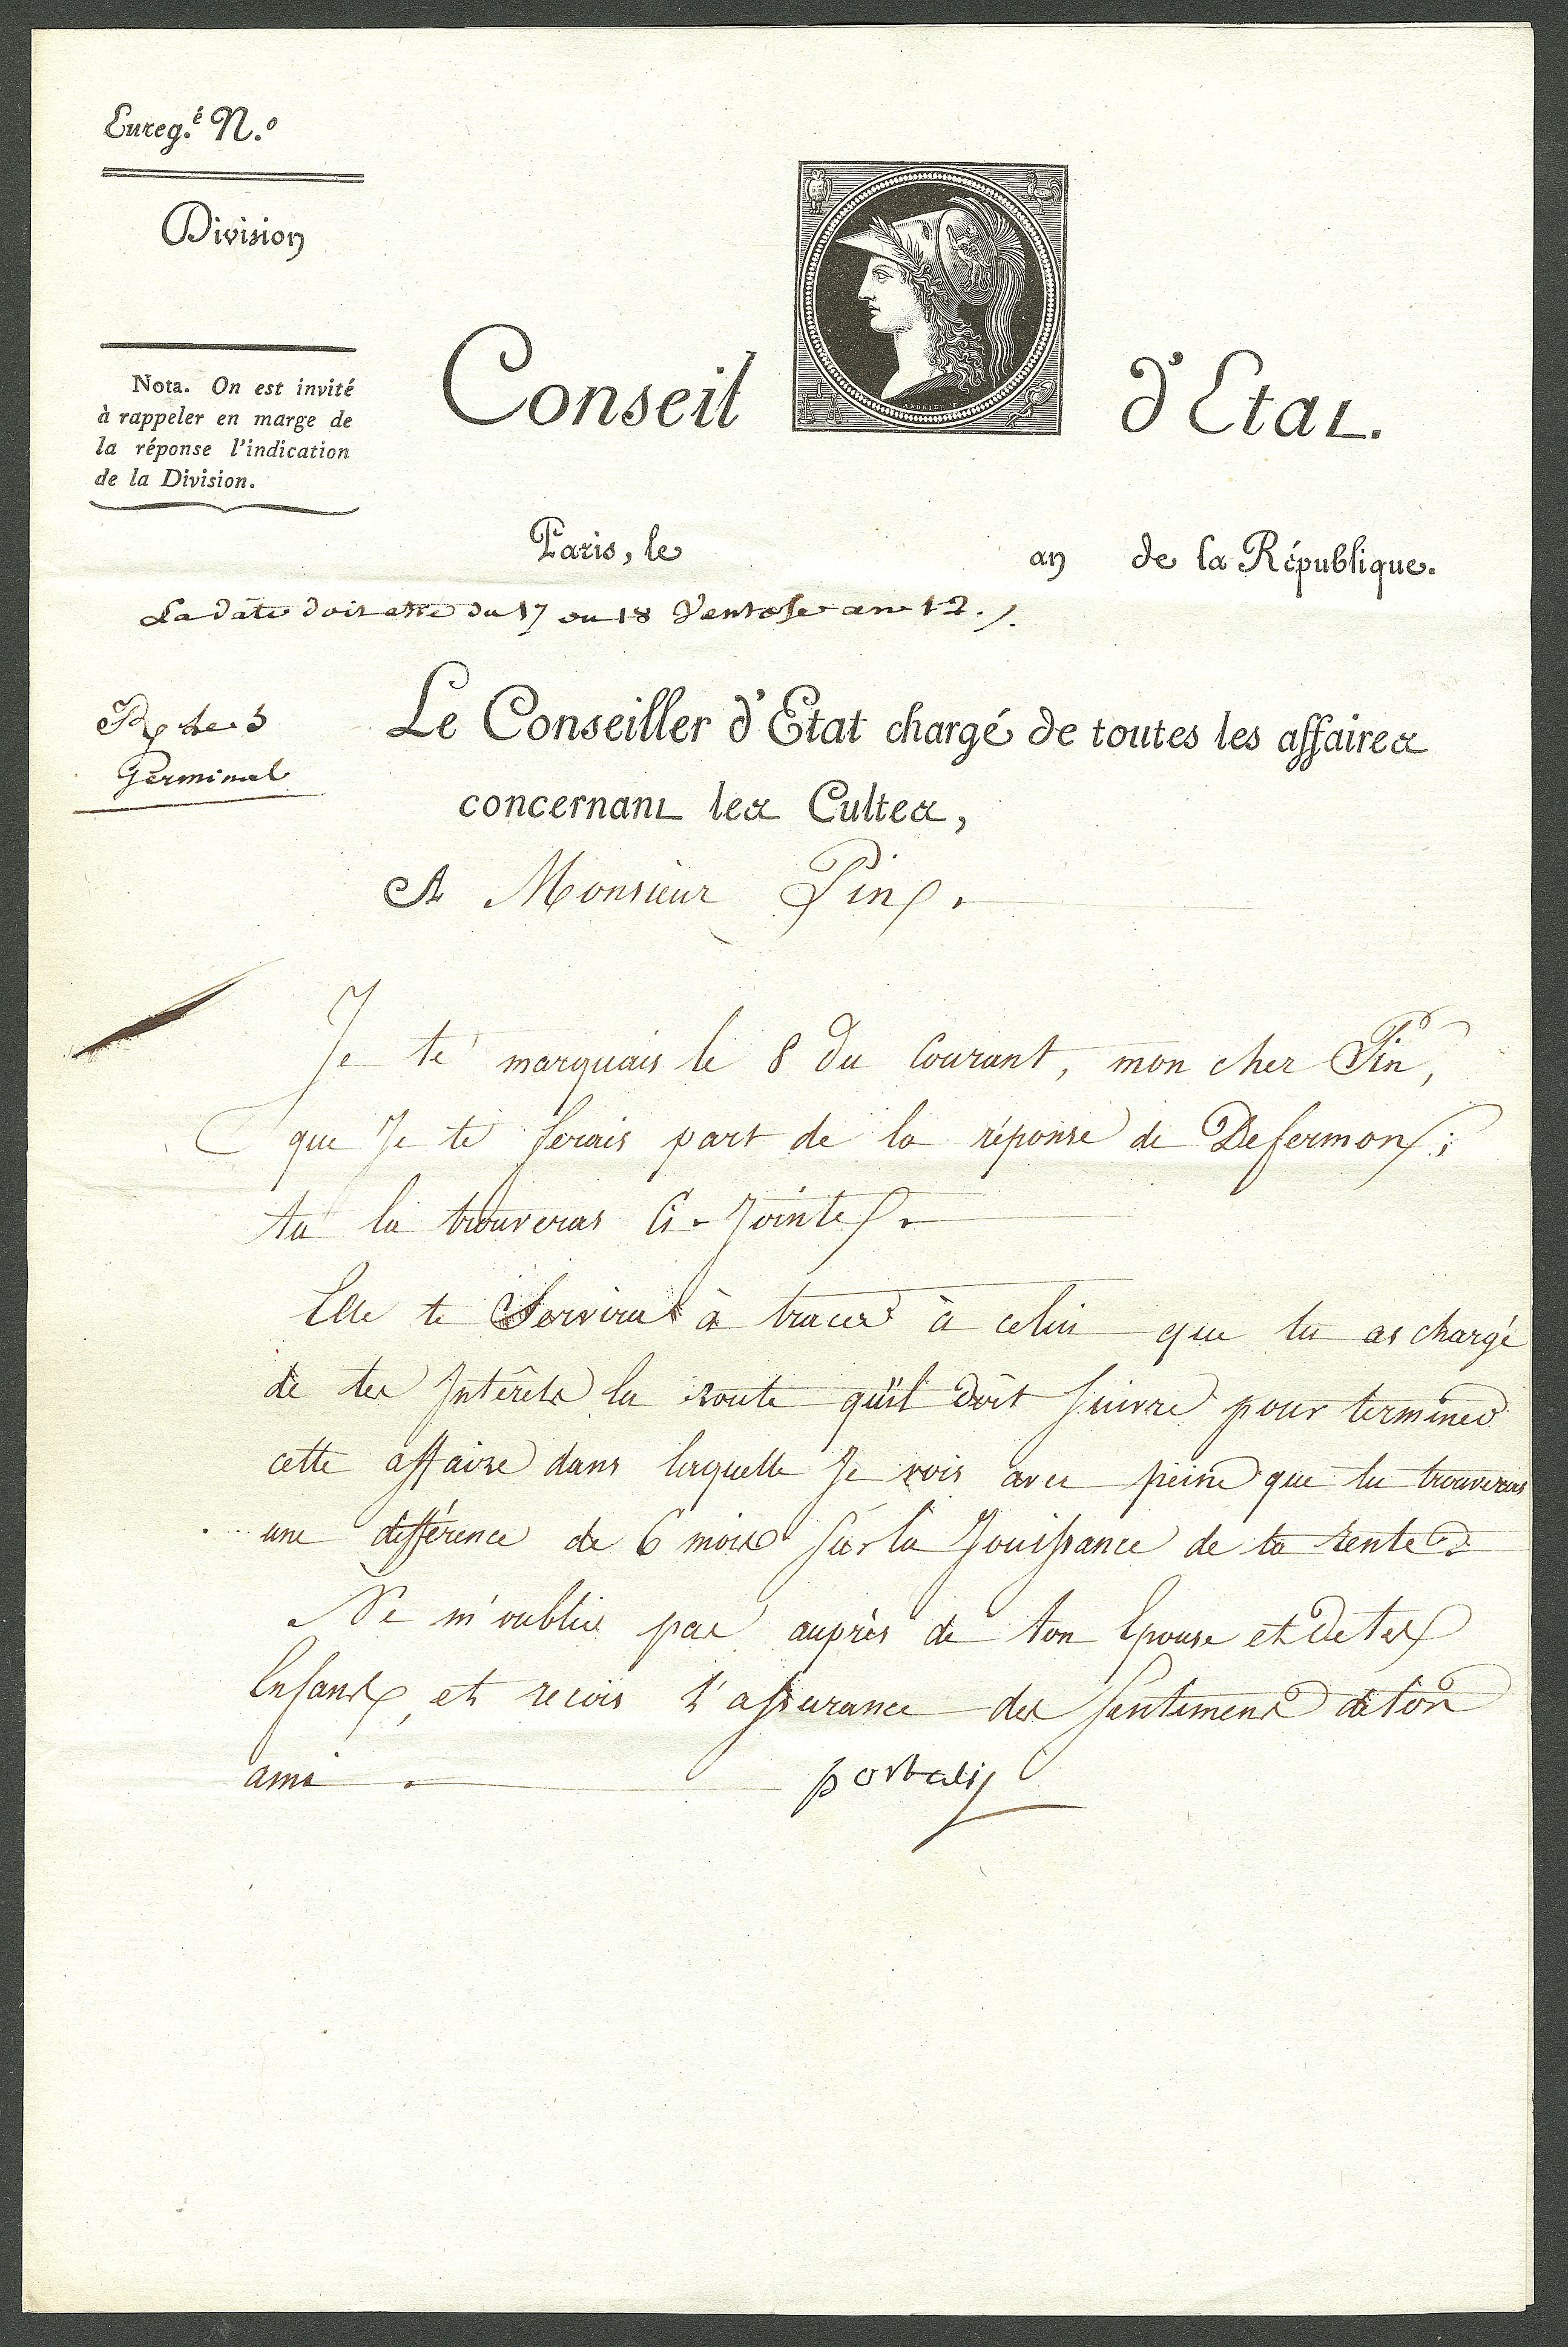 Enreg.é N.o
Division
Nota. On est invité
à rappeler en marge de
la réponse l'indication
de la Division.
Conseil d'Etat.
Paris, le an de la République.
La date doit etre du 17 ou 18 Ventose an 12 ./.
Rp le 5
Germinal
Le Conseiller d'Etat chargé de toutes les affaires
concernant les Cultes,
A Monsieur Pin.
Je te marquais le 8 du Courant, mon cher Pin,
que Je te ferais part de la réponse de Defermon;
tu la trouveras Ci-Jointe.
Elle te Servira à tracer à celui que tu as chargé
de tes Intérêts la route qu'il doit Suivre pour terminer
cette affaire dans laquelle Je vois avec peine que tu trouveras
une différence de 6 mois Sur la Jouissance de ta rente.
Ne m'oublie pas auprès de ton Epouse et de tes
Enfans, et reçois l'assurance des Sentimens de ton
ami. portalis